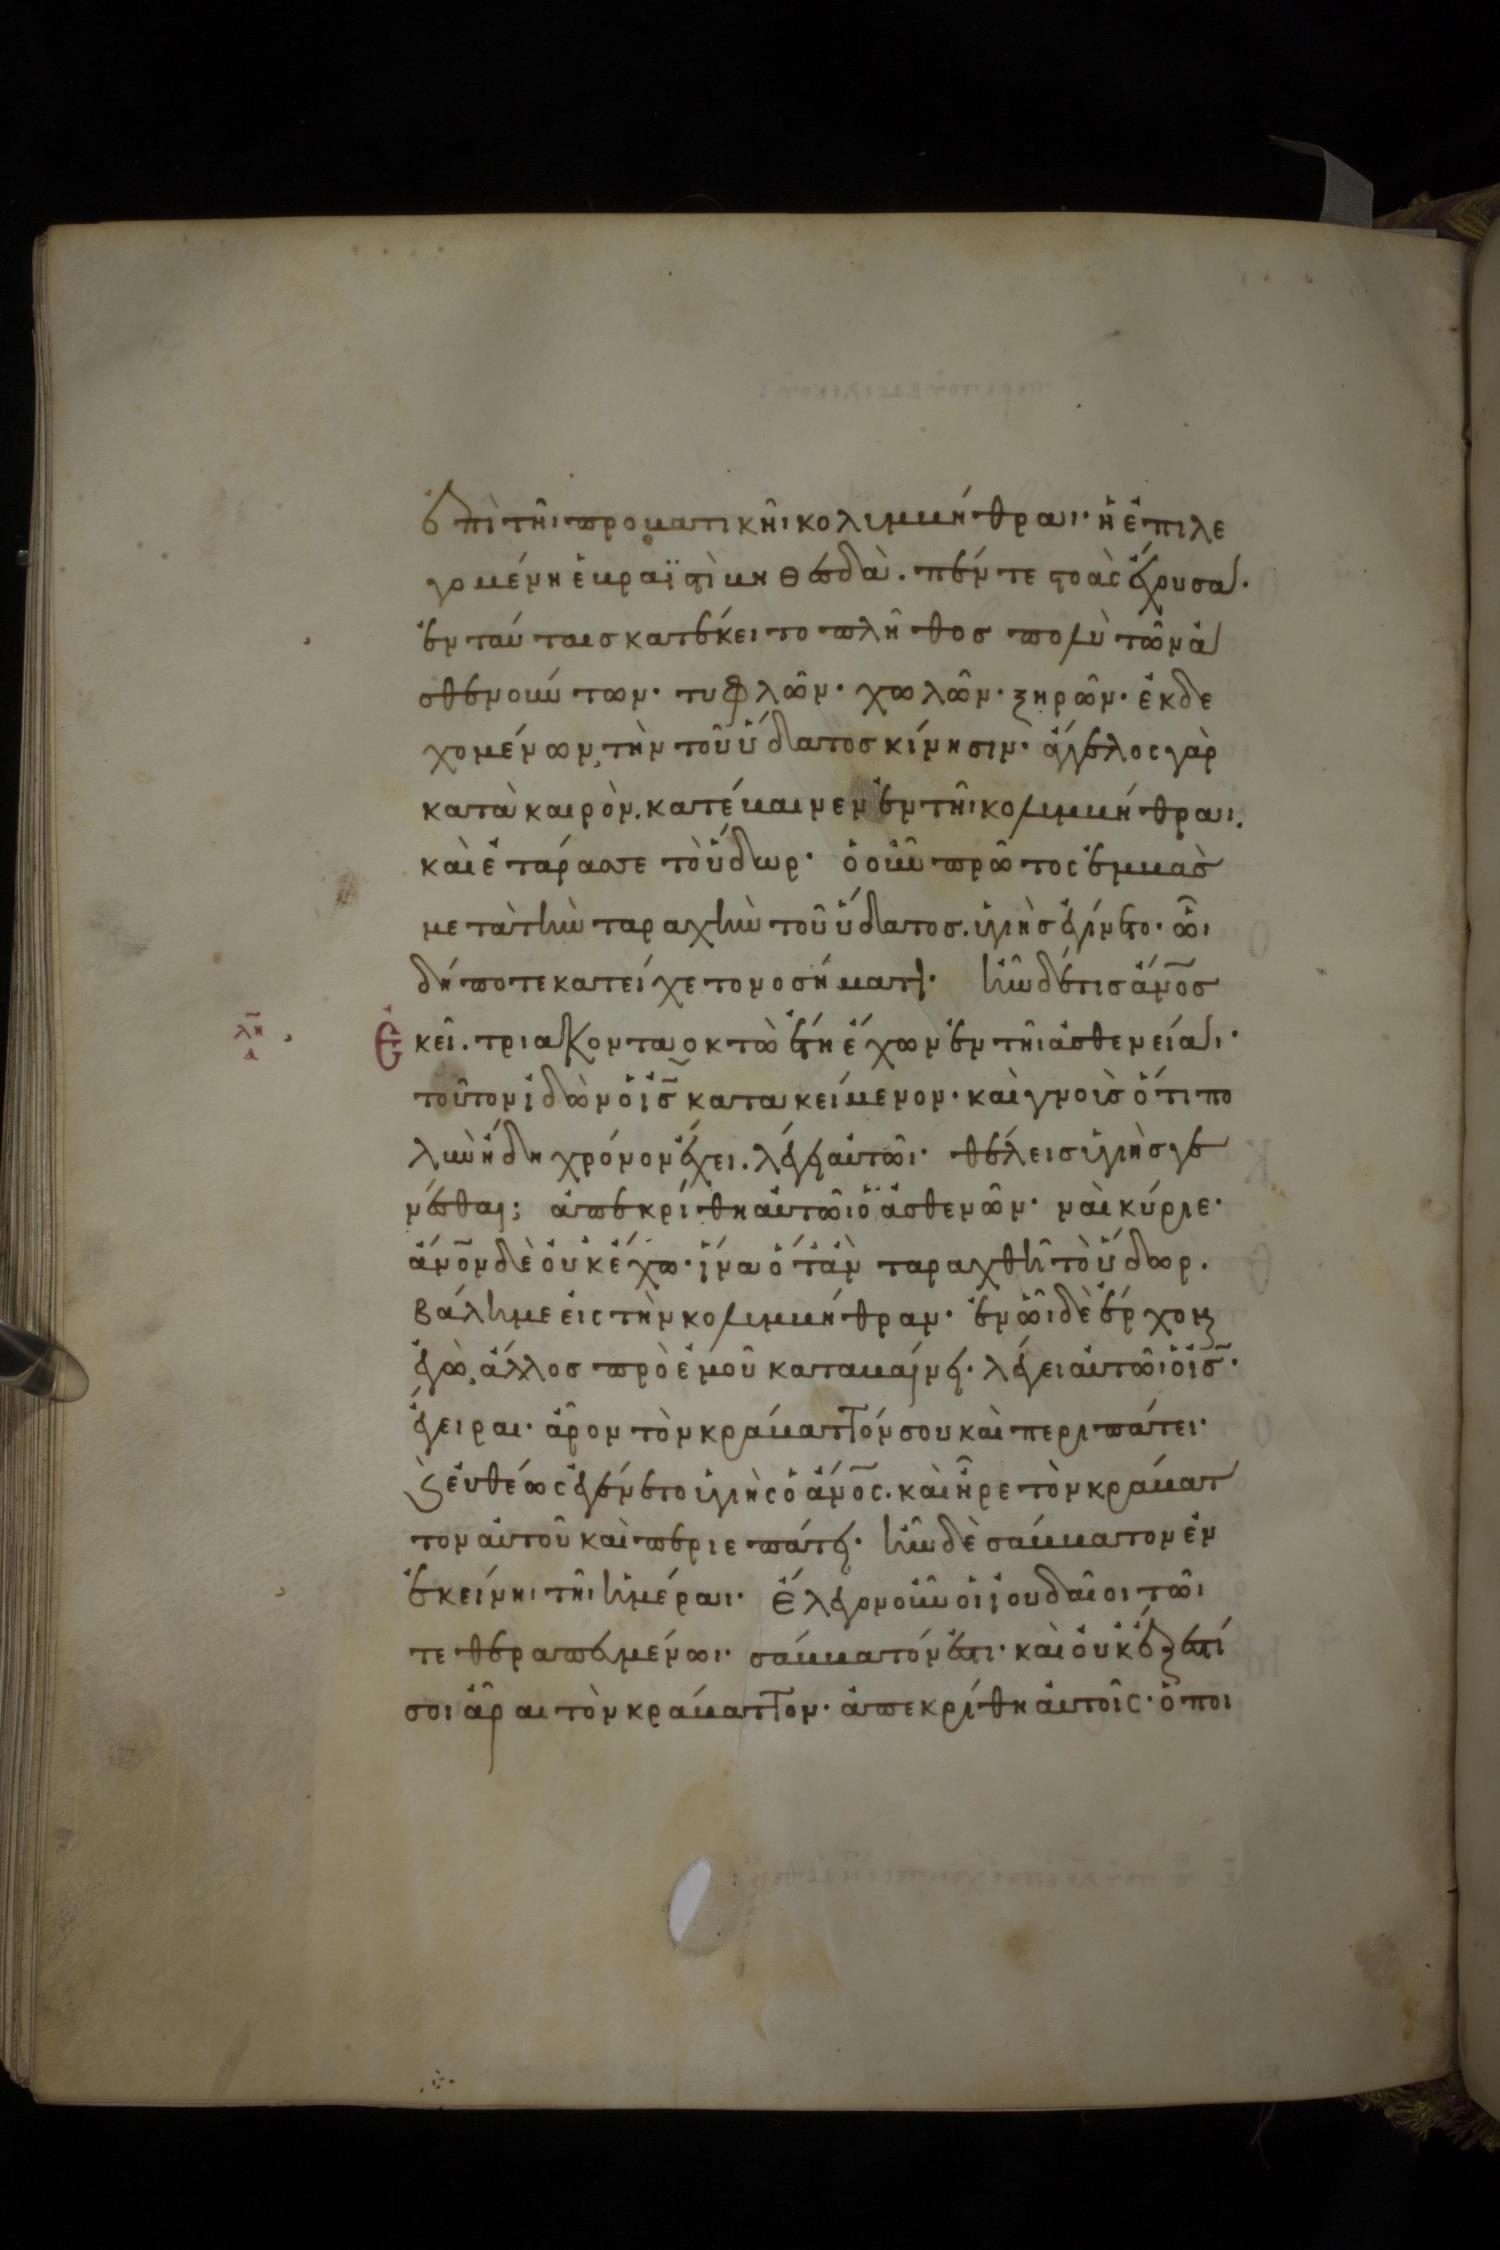 ἐπὶ τῆι προβατικῆι κολυμβήθραι· ἡ ἐπιλε
γομένη ἑβραϊστὶ βηθεσδὰ. πέντε στοὰς ἔχουσα·
ἐν ταύταις κατέκειτο πλῆθος πολὺ τῶν ἀ
σθενούντων· τυφλῶν· χωλῶν· ξηρῶν· ἐκδε
χομένων, τὴν τοῦ ὕδατος κίνησιν· ἄγγελος γὰρ
κατὰ καιρὸν. κατέβαινεν ἐν τῆι κολυμβήθραι.
καὶ ἐτάρασσε τὸ ὕδωρ· ὁ οὖν πρῶτος ἐμβὰς
μετὰ τὴν ταραχὴν τοῦ ὕδατος. ὑγιὴς ἐγίνετο· ὧι
δήποτε κατείχετο νοσήματι· ἦν δέ τις ἄν̅ο̅ς
λη̅
α
Ἐκεῖ. τριακονταοκτὼ ἔτη ἔχων ἐν τῆι ἀσθενείαι·
τοῦτον ἰδὼν ὁ ἰ̅ς̅ κατακείμενον· καὶ γνοὺς ὅτι πο
λὺν ἤδη χρόνον ἔχει. λέγει αὐτῶι· θέλεις ὑγιὴς γε
νέσθαι; ἀπεκρίθη αὐτῶι ὁ ἀσθενῶν· ναὶ κύριε·
ἄν̅ο̅ν δὲ οὐκ ἔχω· ἵνα ὅταν ταραχθῆ τὸ ὕδωρ.
βάλη με εἰς τὴν κολυμβήθραν· ἐν ὧι δὲ ἔρχομαι
ἐγὼ, ἄλλος πρὸ ἐμοῦ καταβαίνει· λέγει αὐτῶι ὁ ἰ̅ς̅·
ἔγειραι· ἆρον τὸν κράβαττόν σου καὶ περιπάτει·
Καὶ εὐθέως ἐγένετο ὑγιὴς ὁ ἄν̅ο̅ς. καὶ ἦρε τὸν κράβατ
τον αὐτοῦ καὶ περιεπάτει· ἦν δὲ σάββατον ἐν
ἐκείνηι τῆι ἡμέραι· Ἔλεγον οὖν οἱ ἰουδαῖοι τῶι
τεθεραπευμένωι· σάββατόν ἐστι· καὶ οὐκ ἔξεστί
σοι ἆραι τὸν κράβαττον· ἀπεκρίθη αὐτοῖς· ὁ ποι